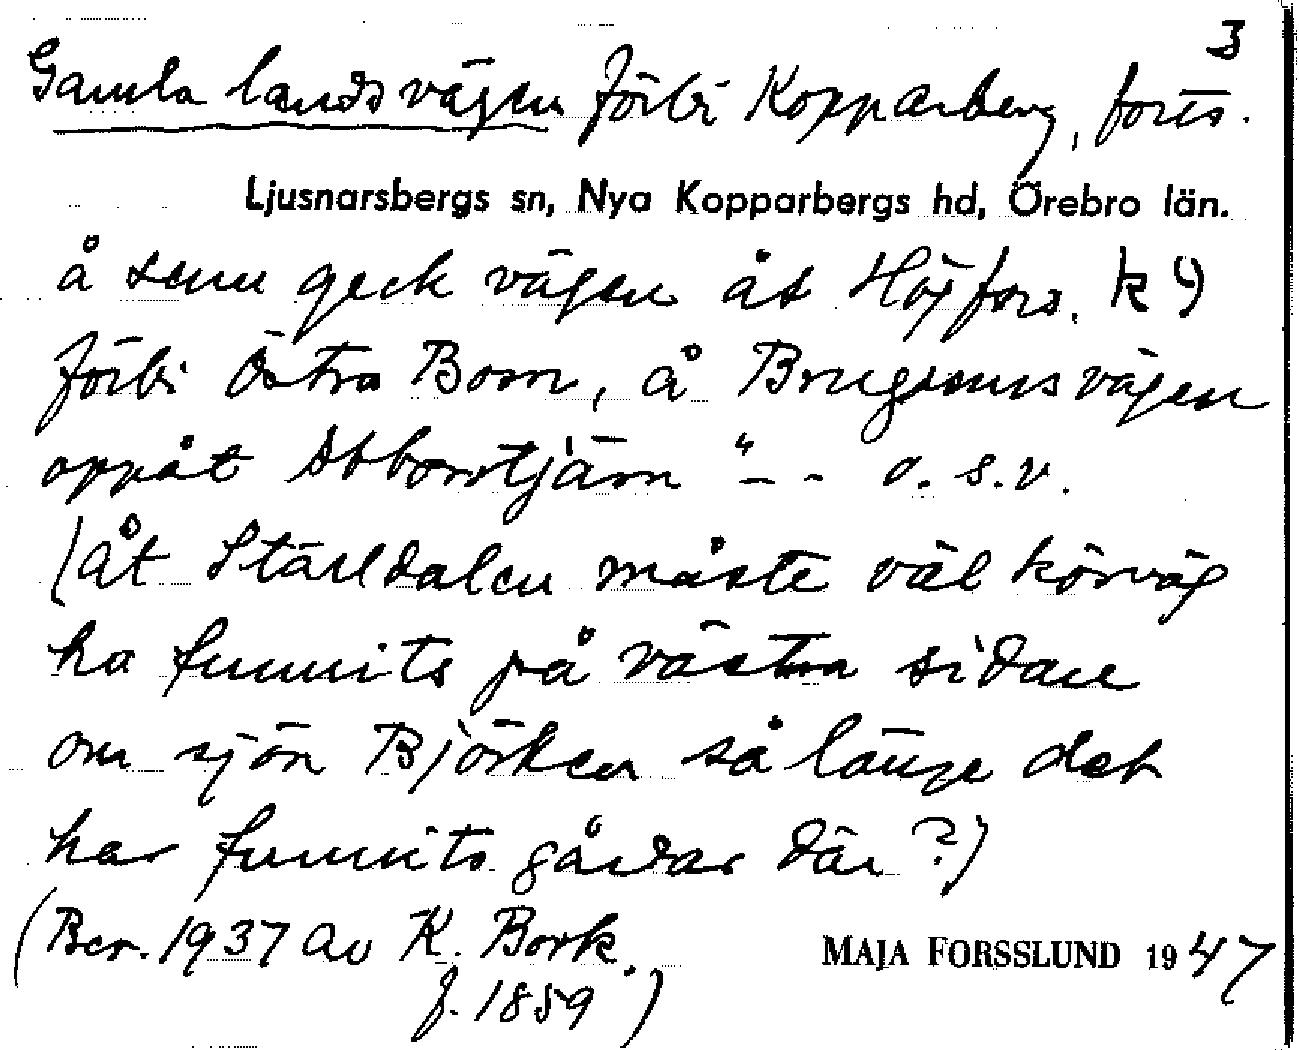 3
Gamla landsvägen förbi Kopparberg, forts.
Ljusnarsbergs sn, Nya Kopparbergs hd, Örebro län.
å senn geck vägen åt Högfors.
förbi Östra Born, å Brugsmusvägen
oppåt Abborrtjärn "-- o.s.v.
(Åt Ställdalen måste väl körväg
ha funnits på västra sidan
om sjön Björken så länge det
har funnits gårdar där?)
(Ber. 1937 av K. Bork.
MAJA FORSSLUND 1947
f. 1859)